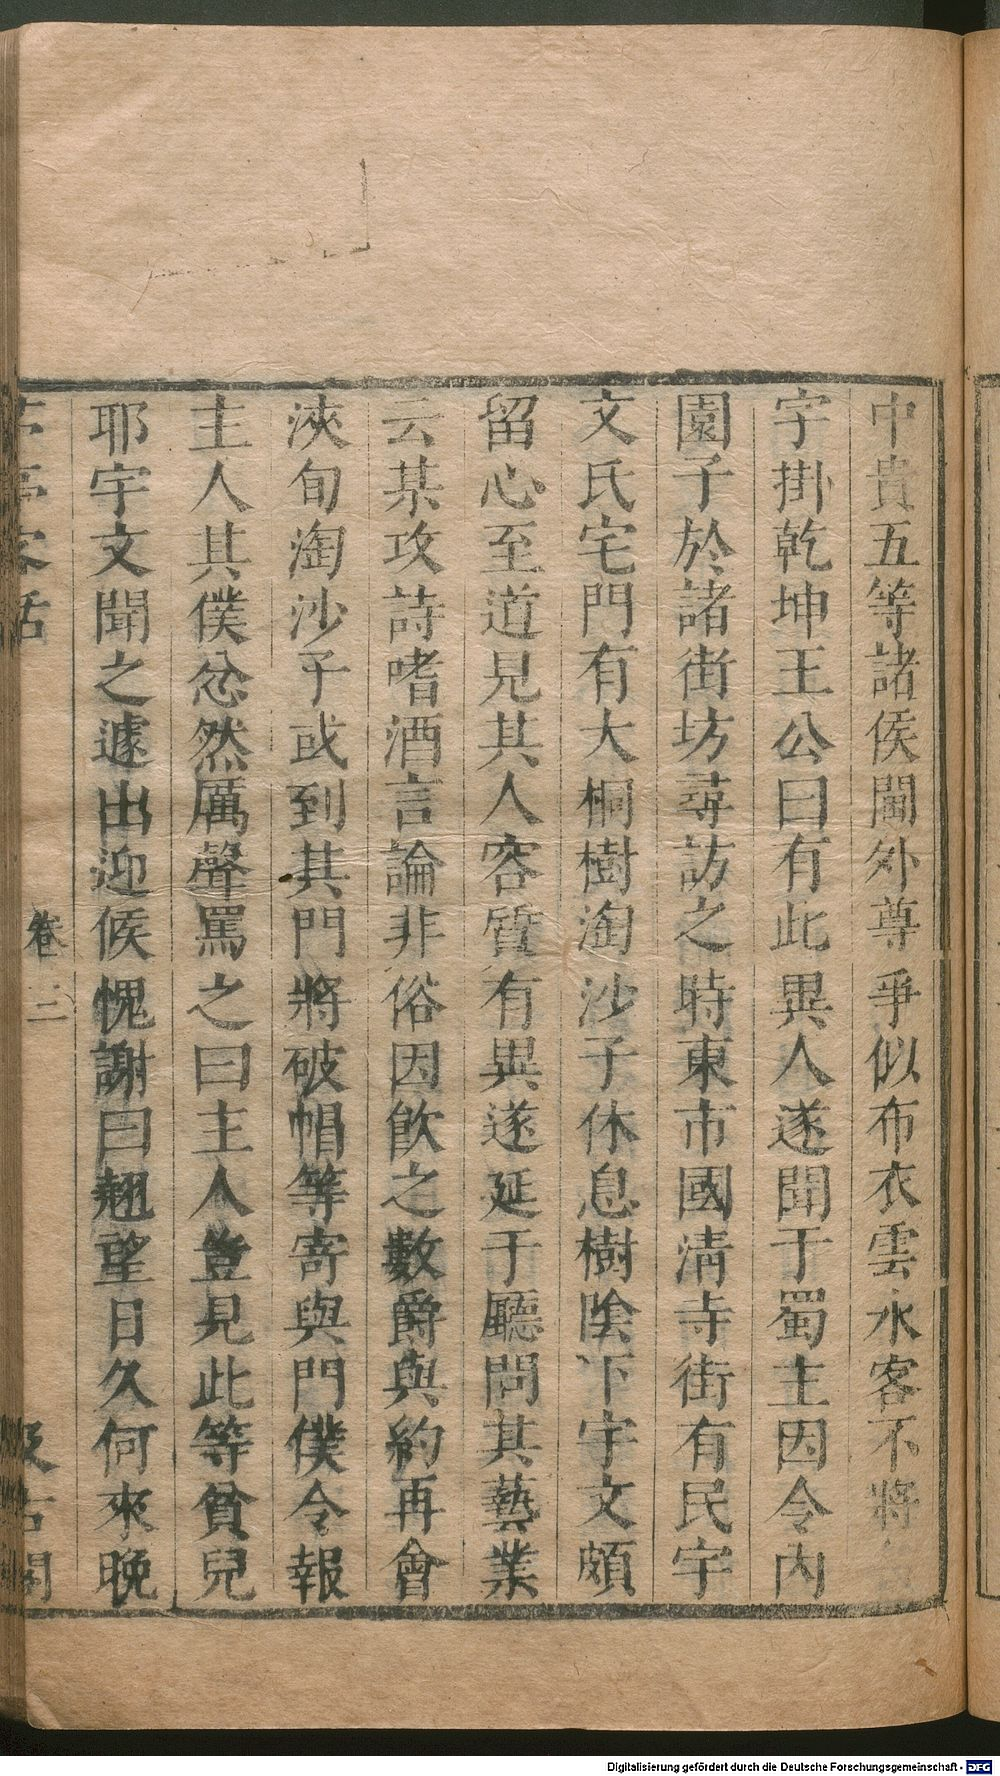 中貴五等諸侯閫外尊爭似布衣雲水客不將
字掛乾坤王公曰有此異人遂聞于蜀主因令內
園子於諸街坊尋訪之時東市國清寺街有民宇
文氏宅門有大桐樹淘沙子休息樹陰下宇文頗
留心至道見其人容質有異遂延于廳問其藝業
云某攻詩嗜酒言論非俗因飲之數爵與約再會
浹旬淘沙子或到其門將破帽等寄與門僕令報
主人其僕忿然厲聲罵之曰主人豈見此等貧兒
耶宇文聞之遽出迎候愧謝曰翹望日久何來晚
亭客話
卷三
汲古閣
Digitalisierung gefördert durch die Deutsche Forschungsgemeinschaft - DFG